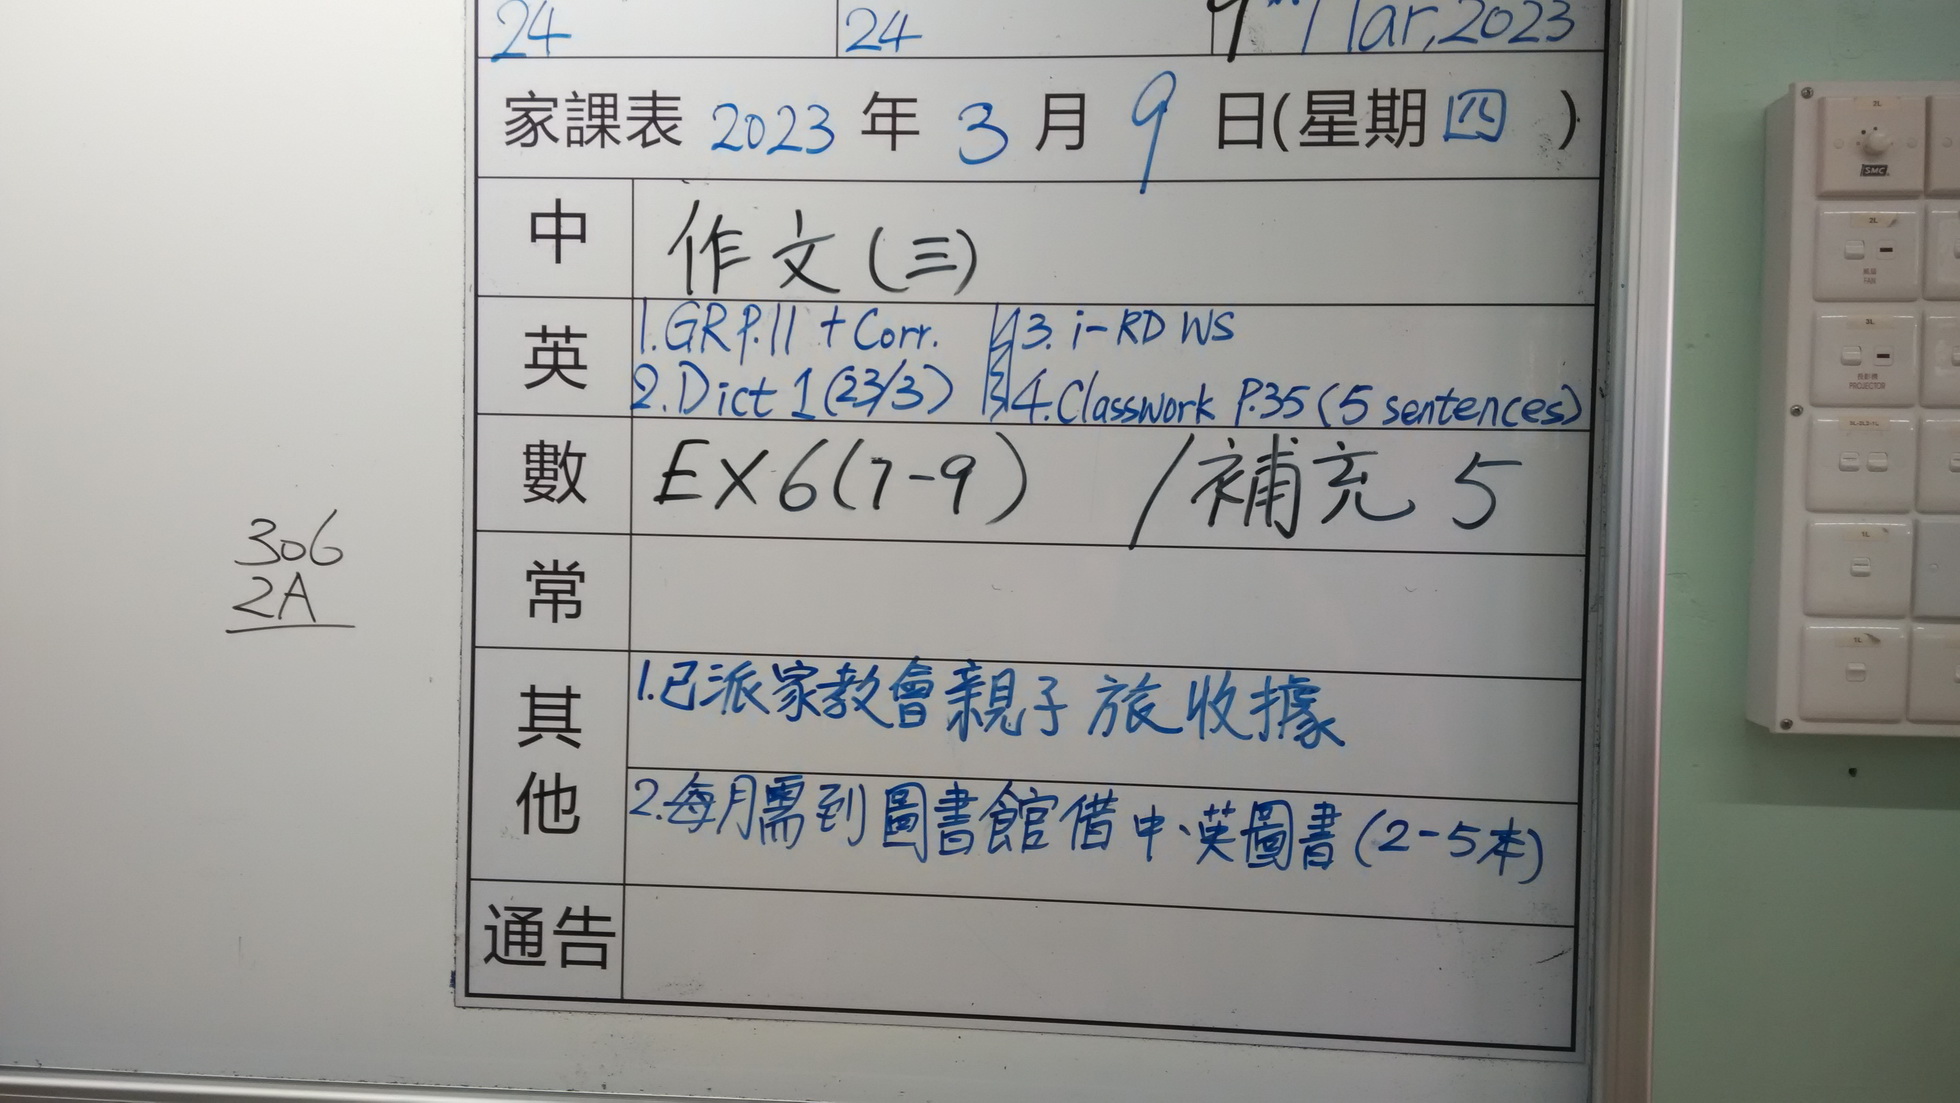 24 24 9th Mar, 2023
家課表 2023 年 3 月 9 日(星期四)
中 作文(三)
英 1. GR P.11 + Corr. 3. i-RD WS
2. Dict 1 (23/3) 4. Classwork P.35 (5 sentences)
數 EX 6(7-9) /補充 5
常
其他 1. 已派家教會親子旅收據
2. 每月需到圖書館借中、英圖書(2-5本)
通告
306
2A
2L
SMC
2L
風扇
FAN
3L
投影機
PROJECTOR
1L
1L